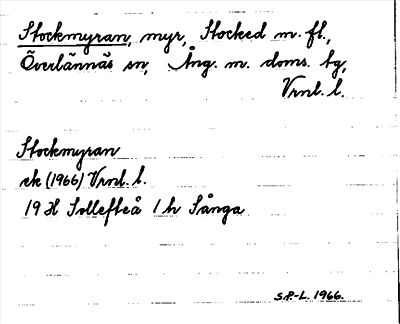 Stockmyran, myr, Stocked m. fl.,
Överlännäs sn, Ång. m. doms. tg,
Vrnl. l.
Stockmyran
ek (1966) Vrnl. l.
19 H Sollefteå 1 h Sånga
S.P.-L. 1966.